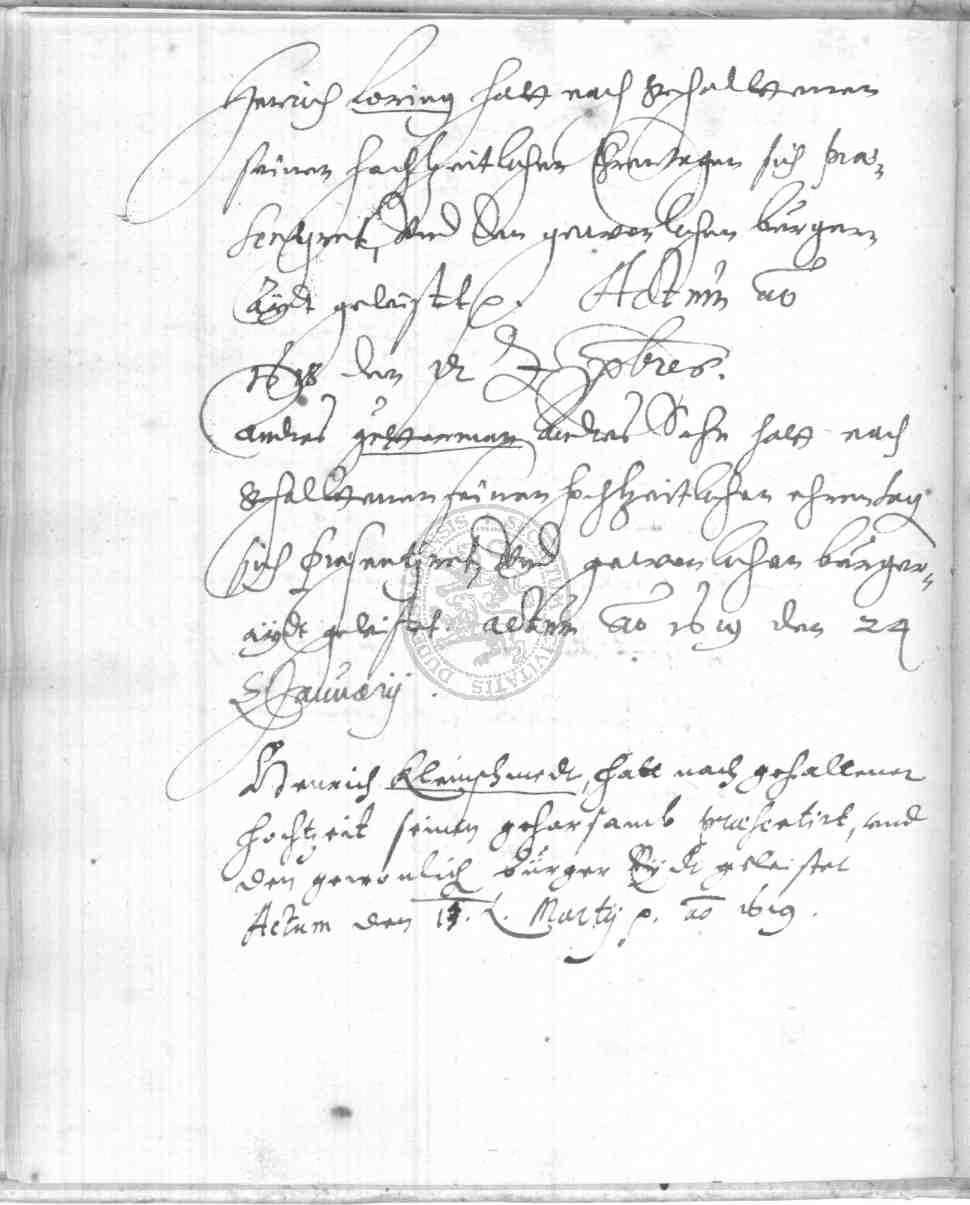 Henrich Loring hatt nach gehalttenen
seinen hochzeitlichen Ehrentagen sich præ-
sentiret, Vnd den gewonlichen bürger
äÿdt geleistet p. Actum ao
1618 den Xbres.
Andres geltterman Andres Sohn hatt nach
gehalttenen seinen hochzeitlichen ehrentag
sich præsentiret, Vnd gewonlichen bürger-
äÿdt geleistet. actum ao 1619 den 24
Januarij.
Henrich Kleinschmedt, hatt nach gehaltener
hochtzeit seinen gehorsamb præsentirt, und
den gewonlich bürger Eÿdt geleistet
Actum den Martij p. ao 1619.
SIGILLUM CIVITATIS DUDERSTADENSIS